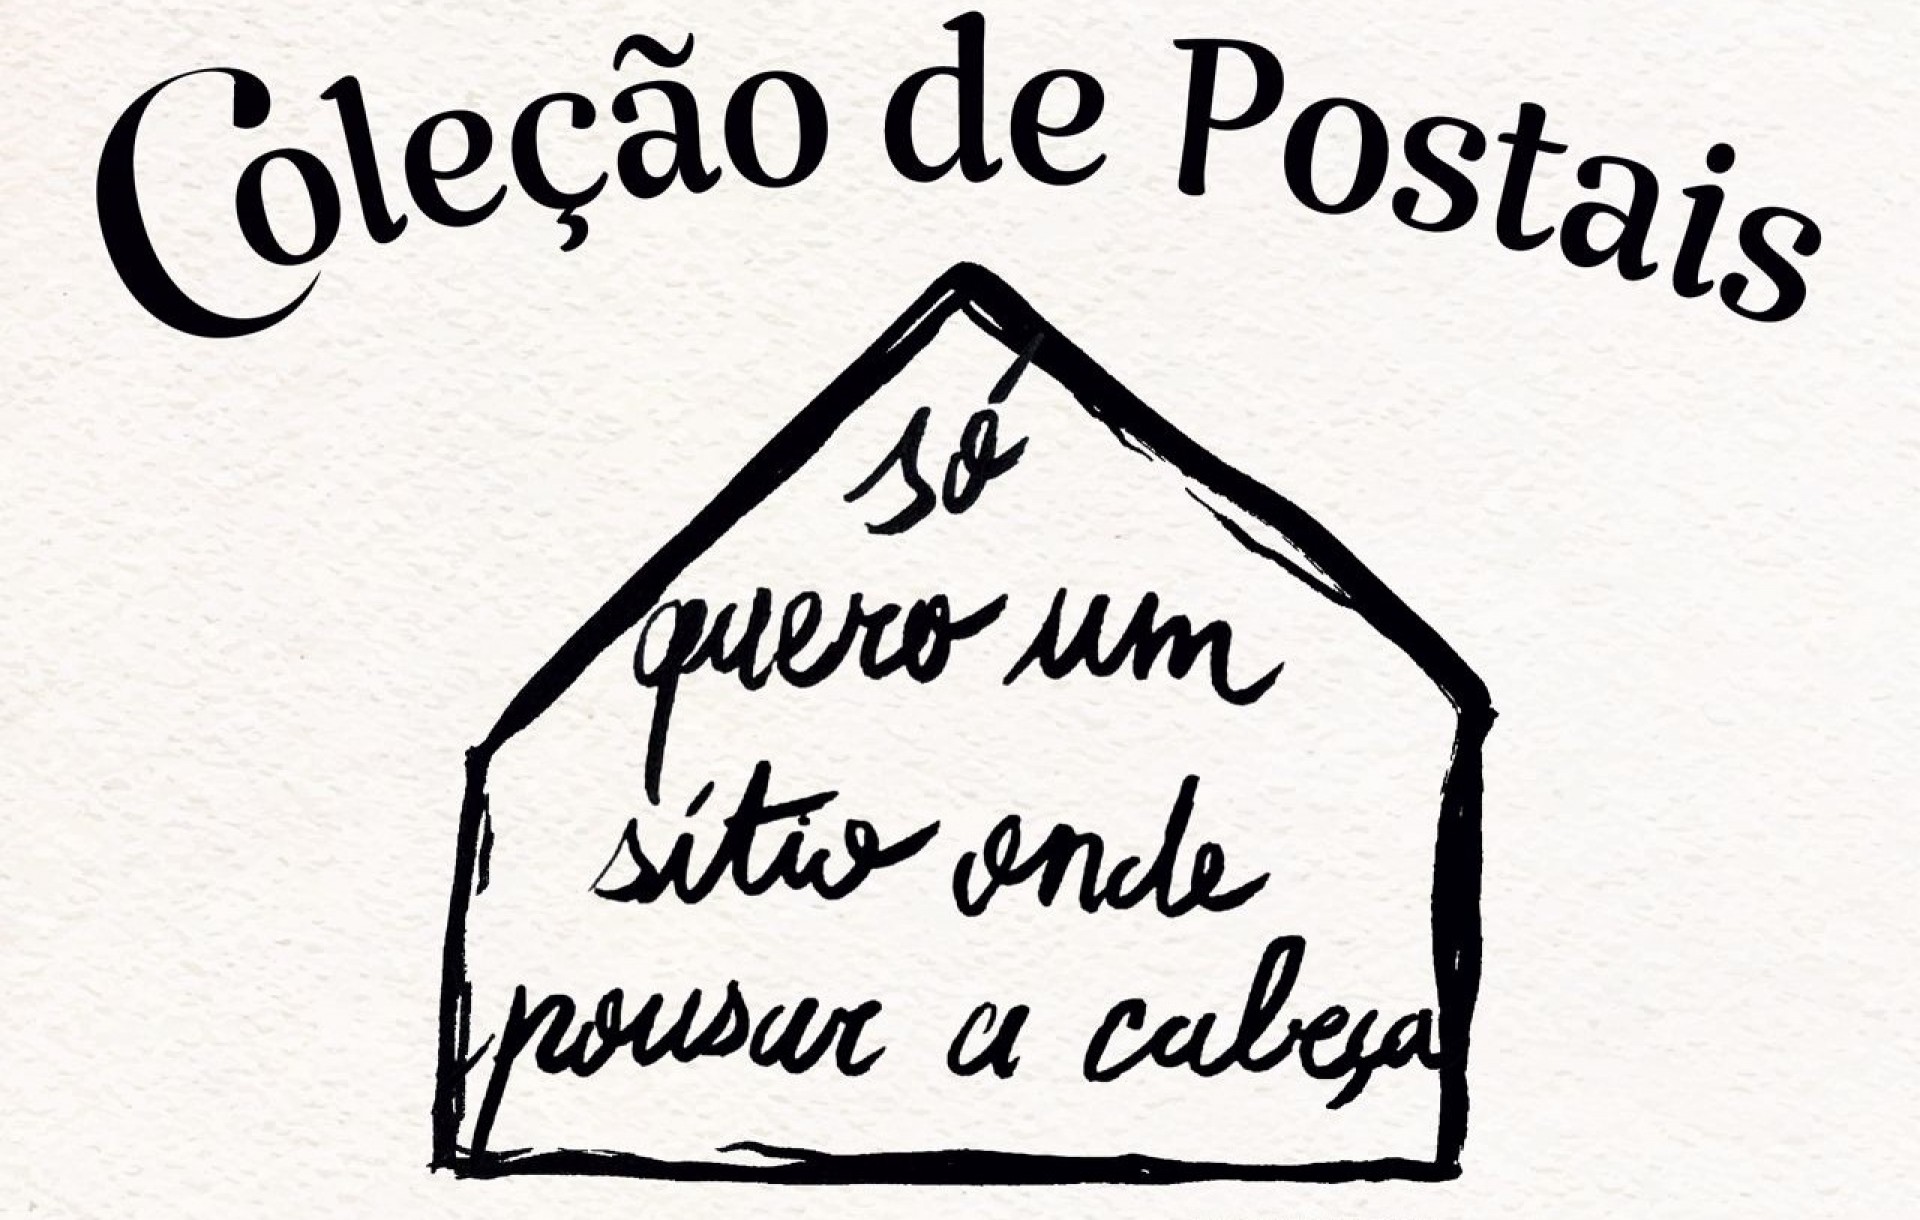 Coleção de Postais
só
quero um
sítio onde
pousar a cabeça